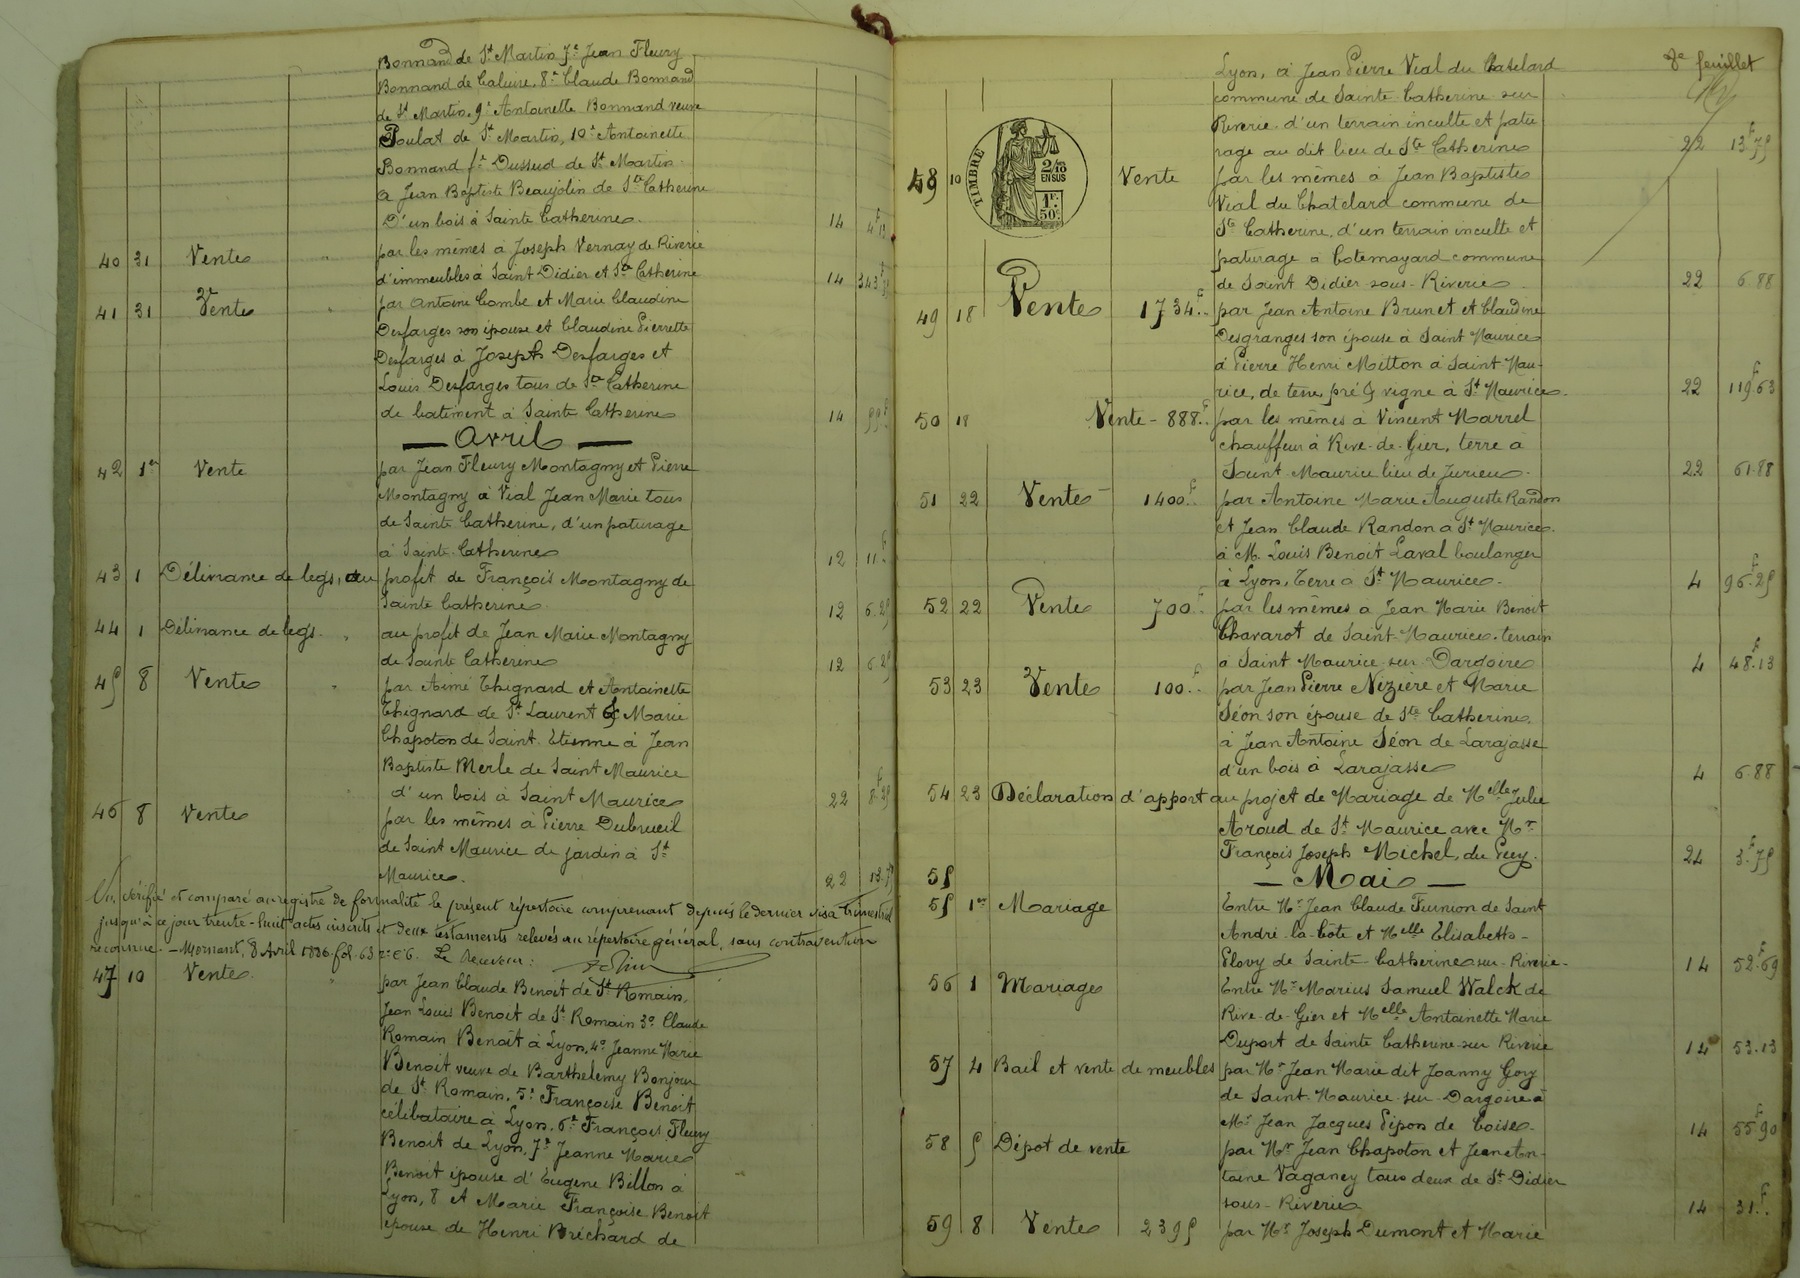 Bonnand de St Martin 7e Jean Fleury
Bonnand de Caluire, 8e Claude Bonnand
de St Martin, 9e Antoinette Bonnand veuve
Poulat de St Martin, 10e Antoinette
Bonnand fe Dussud de St Martin
a Jean Baptiste Beaujolin de Ste Catherine
D'un bois à Sainte Catherine. 14
40 31 Vente par les mêmes à Joseph Vernay de Riverie
d'immeubles à Saint Didier et Ste Catherine 14 343
41 31 Vente par Antoine Combe et Marie Claudine
Desfarges son épouse et Claudine Pierrette
Desfarges à Joseph Desfarges et
Louis Desfarges tous de Ste Catherine
de batiment à Sainte Catherine 14 99
— Avril —
42 1er Vente par Jean Fleury Montagny et Pierre
Montagny à Vial Jean Marie tous
de Sainte Catherine, d'un paturage
à Sainte Catherine 12 11
43 1 Délivrance de legs, au profit de François Montagny de
Sainte Catherine 12 6.25
44 1 Délivrance de legs. au profit de Jean Marie Montagny
de Sainte Catherine 12 6.25
45 8 Vente par Aimé Thignard et Antoinette
Thignard de St Laurent & Marie
Chapoton de Saint Etienne à Jean
Baptiste Merle de Saint Maurice
d'un bois à Saint Maurice 22
46 8 Vente par les mêmes à Pierre Dubrueil
de Saint Maurice de jardin à St
Maurice. 22 13.75
Vu, vérifié et comparé au registre de formalité le présent répertoire comprenant depuis le dernier visa trimestriel
jusqu'à ce jour trente-huit actes inscrits et deux testaments relevés au répertoire général, sans contravention
reconnue. — Mornant, 8 Avril 1896 fol. 63 r° c 6. Le Receveur:
47 10 Vente par Jean Claude Benoit de St Romain,
Jean Louis Benoit de St Romain 3° Claude
Romain Benoît à Lyon, 4° Jeanne Marie
Benoit veuve de Barthelemy Bonjour
de St Romain, 5° Françoise Benoit
célibataire à Lyon, 6° François Fleury
Benoit de Lyon, 7e Jeanne Marie
Benoit épouse d'Eugène Billon à
Lyon, 8 et Marie Françoise Benoit
épouse de Henri Brichard de
8e feuillet
Lyon, à Jean Pierre Vial du Chatelard
commune de Sainte Catherine sur
Riverie. d'un terrain inculte et patu
rage au dit lieu de Ste Catherine 22 13f75
48 10 TIMBRE 2/10 EN SUS 1F. 50c Vente par les mêmes à Jean Baptiste
Vial du Chatelard commune de
Ste Catherine, d'un terrain inculte et
paturage à Cotemayard commune
de Saint Didier-sous-Riverie 22 6.88
49 18 Vente 1734f.. par Jean Antoine Brunet et Claudine
Desgranges son épouse à Saint Maurice
à Pierre Henri Mitton à Saint Mau-
rice, de terre, pré & vigne à St Maurice. 22 119f63
50 18 Vente - 888f.. par les mêmes à Vincent Marrel
chauffeur à Rive-de-Gier, terre à
Saint Maurice lieu de Jurieu. 22 61.88
51 22 Vente 1400f. par Antoine Marie Auguste Randon
et Jean Claude Randon à St Maurice.
à M. Louis Benoit Laval boulanger
à Lyon, Terre à St Maurice. 4 96f.25
52 22 Vente 700f. par les mêmes à Jean Marie Benoit
Chavarot de Saint-Maurice. terrain
à Saint Maurice sur Dargoire 4 48f.13
53 23 Vente 100f. par Jean Pierre Nizière et Marie
Séon son épouse de Ste Catherine,
à Jean Antoine Séon de Larajasse
d'un bois à Larajasse 4 6.88
54 23 Déclaration d'apport au projet de Mariage de Melle Julie
Aroud de St Maurice avec Mr
François Joseph Michel, du Péey. 24 3f.75
55 — Mai —
55 1er Mariage Entre Mr Jean Claude Furnion de Saint
André-la-Côte et Melle Elisabeth
Plovy de Sainte-Catherine sur-Riverie- 14 52f.69
56 1 Mariage Entre Mr Marius Samuel Walck de
Rive-de-Gier et Melle Antoinette Marie
Duport de Sainte Catherine-sur Riverie 14 53.13
57 4 Bail et vente de meubles par Mr Jean Marie dit Joanny Goy
de Saint-Maurice-sur-Dargoire à
Mr Jean Jacques Pipon de Coise. 14 55f.90
58 5 Dépot de vente par Mr Jean Chapoton et Jean An-
toine Vaganey tous deux de St Didier
sous-Riverie 14 31f.
59 8 Vente 2395 par Mr Joseph Dumont et Marie